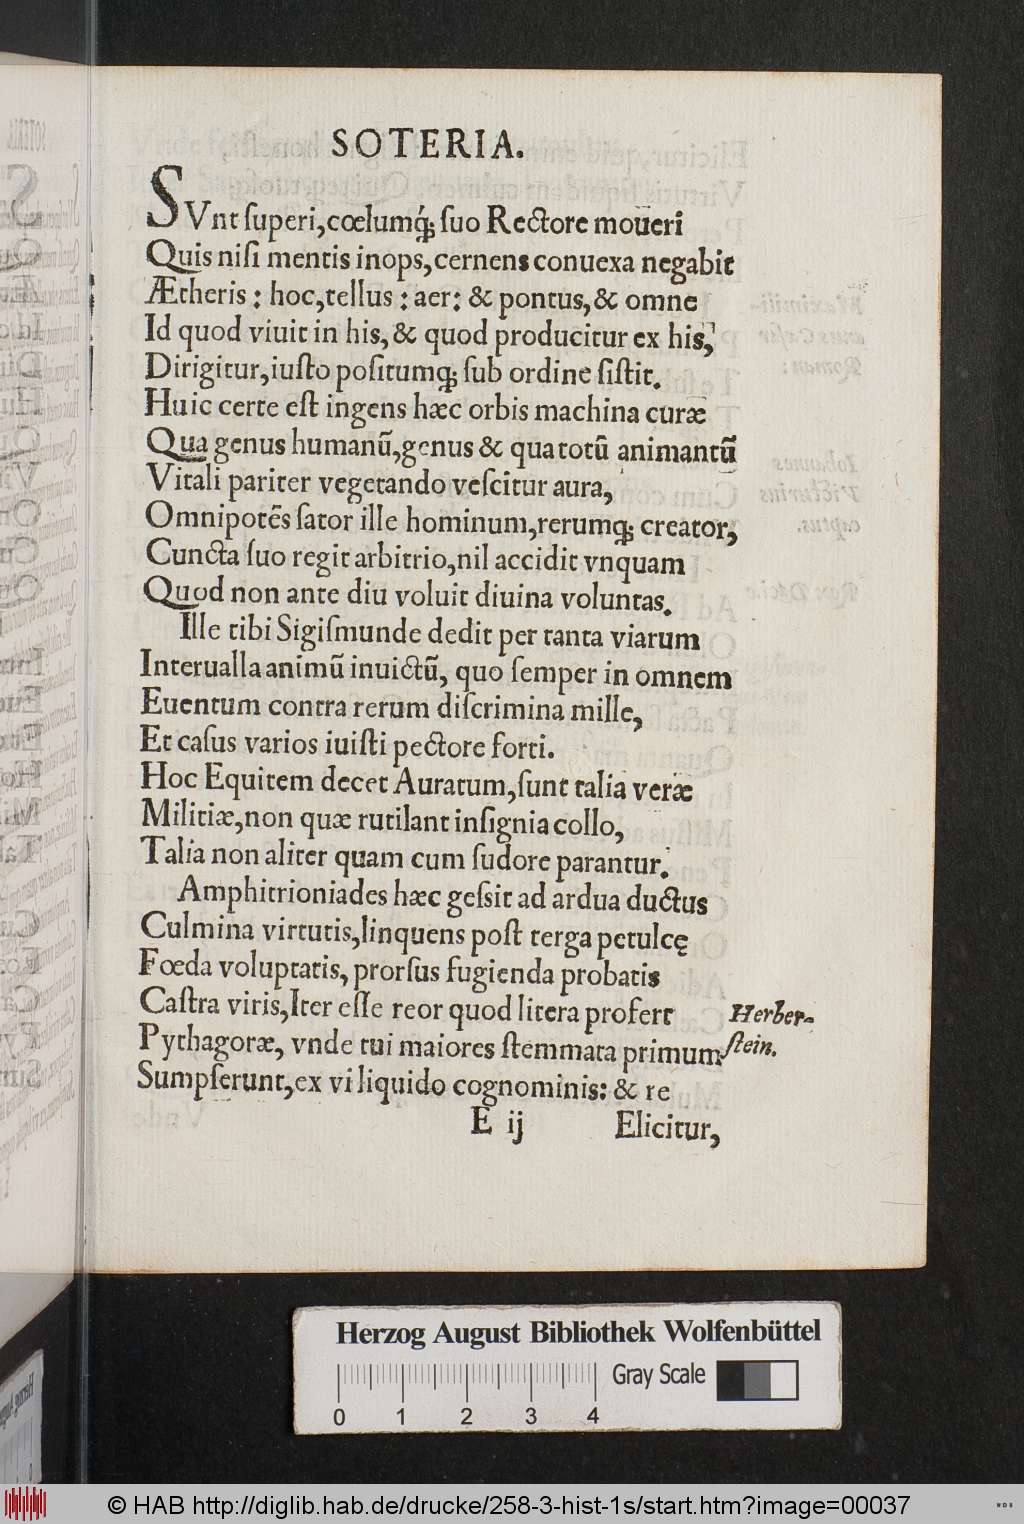 SOTERIA.
SVnt ſuperi, cœlumq́; ſuo Rectore moueri
Quis niſi mentis inops, cernens conuexa negabit
Ætheris: hoc, tellus: aer: & pontus, & omne
Id quod viuit in his, & quod producitur ex his,
Dirigitur, iuſto poſitumq; ſub ordine ſiſtit.
Huic certe eſt ingens hæc orbis machina curæ
Qua genus humanũ, genus & qua totũ animantũ
Vitali pariter vegetando veſcitur aura,
Omnipotẽs ſator ille hominum, rerumq; creator,
Cuncta ſuo regit arbitrio, nil accidit vnquam
Quod non ante diu voluit diuina voluntas.
Ille tibi Sigiſmunde dedit per tanta viarum
Interualla animũ inuictũ, quo ſemper in omnem
Euentum contra rerum diſcrimina mille,
Et caſus varios iuiſti pectore forti.
Hoc Equitem decet Auratum, ſunt talia veræ
Militiæ, non quæ rutilant inſignia collo,
Talia non aliter quam cum ſudore parantur.
Amphitrioniades hæc geſsit ad ardua ductus
Culmina virtutis, linquens poſt terga petulcę
Fœda voluptatis, prorſus fugienda probatis
Caſtra viris, Iter eſſe reor quod litera profert
Herber-
Pythagoræ, vnde tui maiores ſtemmata primum
ſtein.
Sumpſerunt, ex vi liquido cognominis: & re
E ij
Elicitur,
Herzog August Bibliothek Wolfenbüttel
Gray Scale
0 1 2 3 4
© HAB http://diglib.hab.de/drucke/258-3-hist-1s/start.htm?image=00037